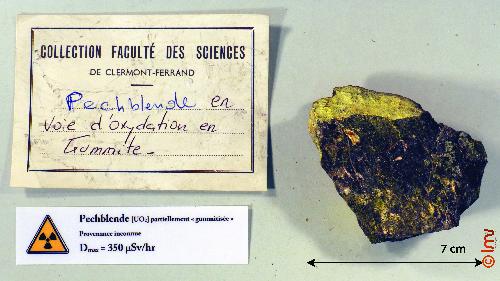 COLLECTION FACULTÉ DES SCIENCES
DE CLERMONT-FERRAND
Pechblende en
voie d'oxydation en
Gummite.
Pechblende [UO₂] partiellement « gummitisée »
Provenance inconnue
Dmax = 350 µSv/hr
7 cm
© lmv